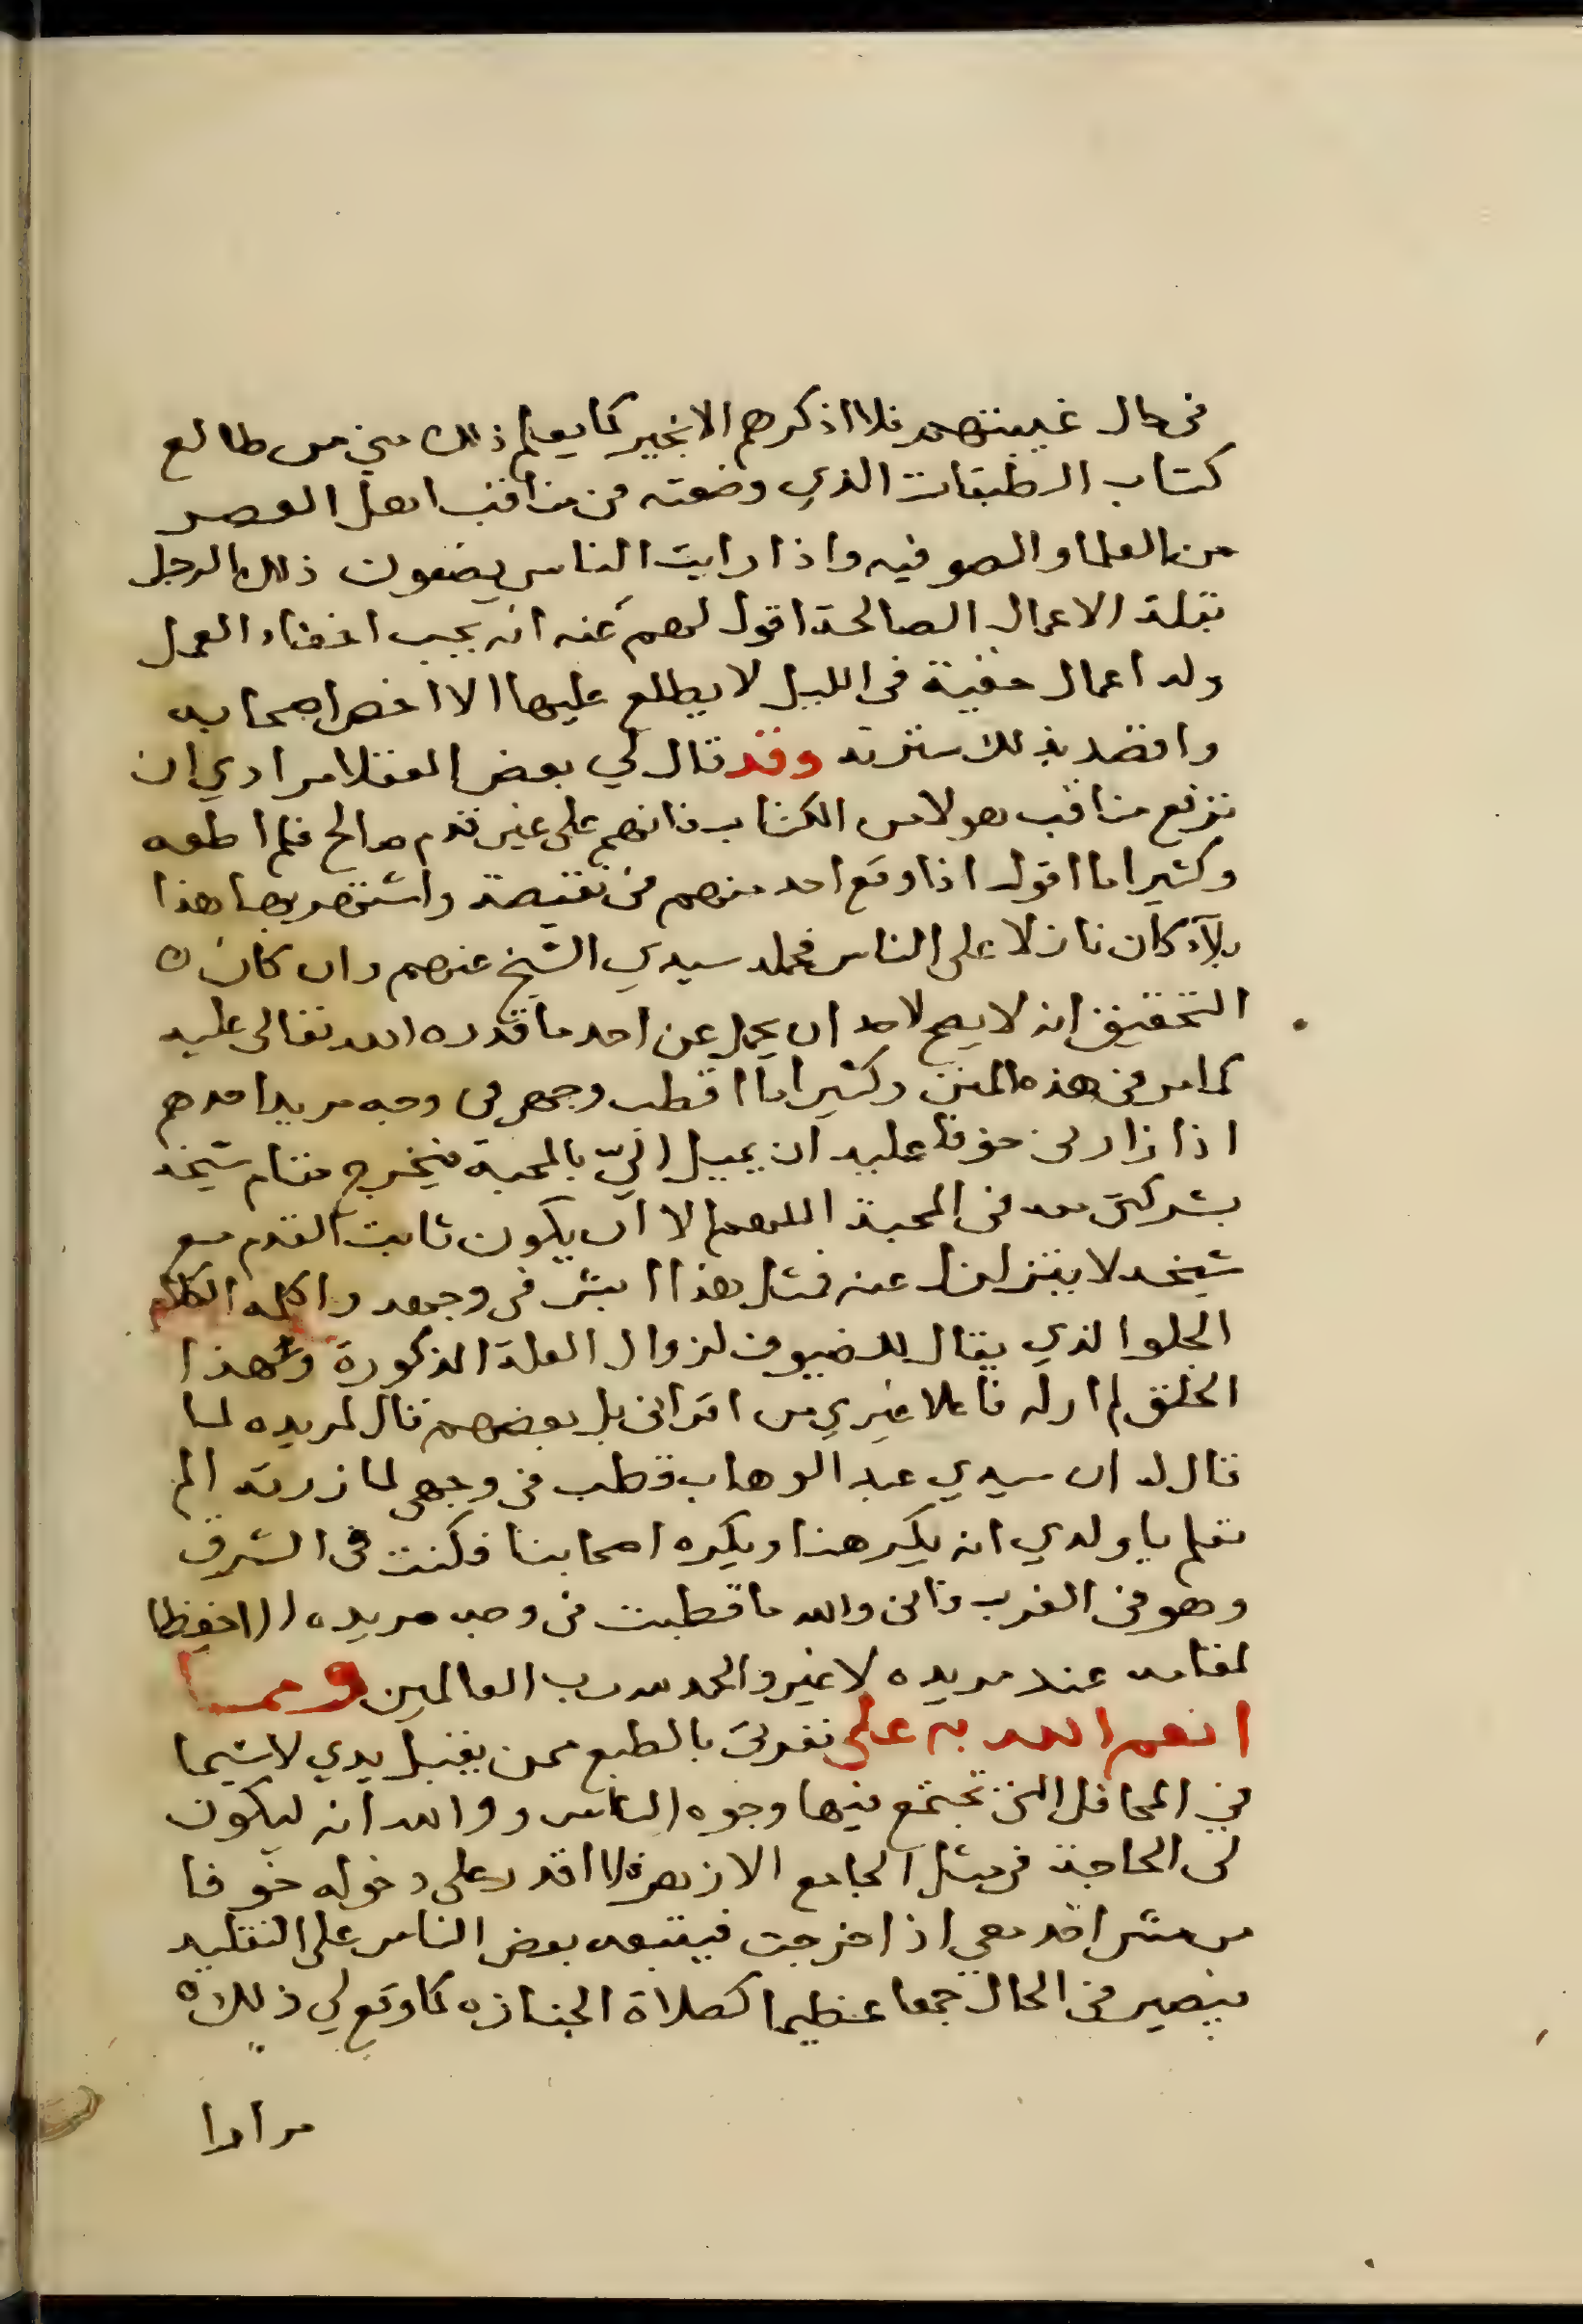 في حال غيبتهم فلا اذكرهم الا بخير كما يعلم ذلك مني من طالع
كتاب الطبقات الذي وضعته في مناقب اهل العصر
من العلما والصوفيه واذا رايت الناس يصفون ذلك الرجل
بقلة الاعمال الصالحة اقول لهم عنه انه يحب اخفاء العمل
وله اعمال خفية في الليل لا يطلع عليها الا اخص اصحابه
واقصد بذلك سترته وقد قال لي بعض العقلا مرادي ان
ترفع مناقب هولا من الكتاب فانهم على غير قدم صالح فلم اطعه
وكثيرا ما اقول اذا وقع احد منهم في نقيصة واشتهر بها هذا
بلآء كان نازلا على الناس فحمله سيدي الشيخ عنهم وان كان
التحقيق انه لا يصح لاحد ان يحمل عن احد ما قدره الله تعالى عليه
كما مر في هذه المنن وكثيرا ما اقطب وجهي في وجه مريد احدهم
اذا زارني خوفا عليه ان يميل اليّ بالمحبة فيخرج مقام شيخه
بشركتي معه في المحبة اللهم الا ان يكون ثابت القدم مع
شيخه لا يتزلزل عنه فمثل هذا ابش في وجهه واكلمه الكلام
الحلو الذي يقال للضيوف لزوال العلة المذكورة وهذا
الخلق لم ار له فاعلا غيري من اقراني بل بعضهم قال لمريده لما
قال له ان سيدي عبد الوهاب قطب في وجهي لما زرته الم
تعلم يا ولدي انه يكرهنا ويكره اصحابنا فكنت في الشرق
وهو في الغرب فاني والله ما قطبت في وجه مريده الا حفظا
لمقامه عند مريده لا غير والحمد لله رب العالمين ومما
انعم الله به علي نفرتي بالطبع ممن يقبل يدي لاسيما
في المحافل التي تجتمع فيها وجوه الناس ووالله انه ليكون
لي الحاجة في مثل الجامع الازهر فلا اقدر على دخوله خوفا
من مشي احد معي اذا خرجت فيتبعه بعض الناس على التقليد
فيصير في الحال جمعا عظيما كصلاة الجنازه كما وقع لي ذلك
مرارا